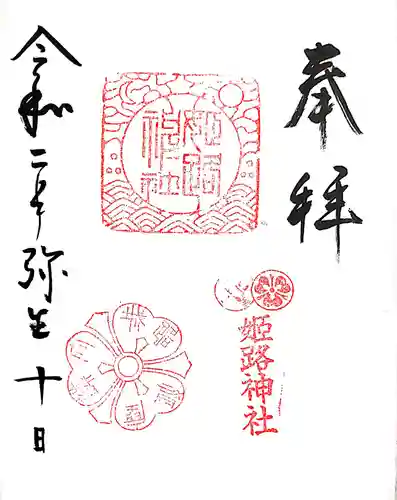 奉拝
姫路
神社
姫路神社
令和二年弥生十日